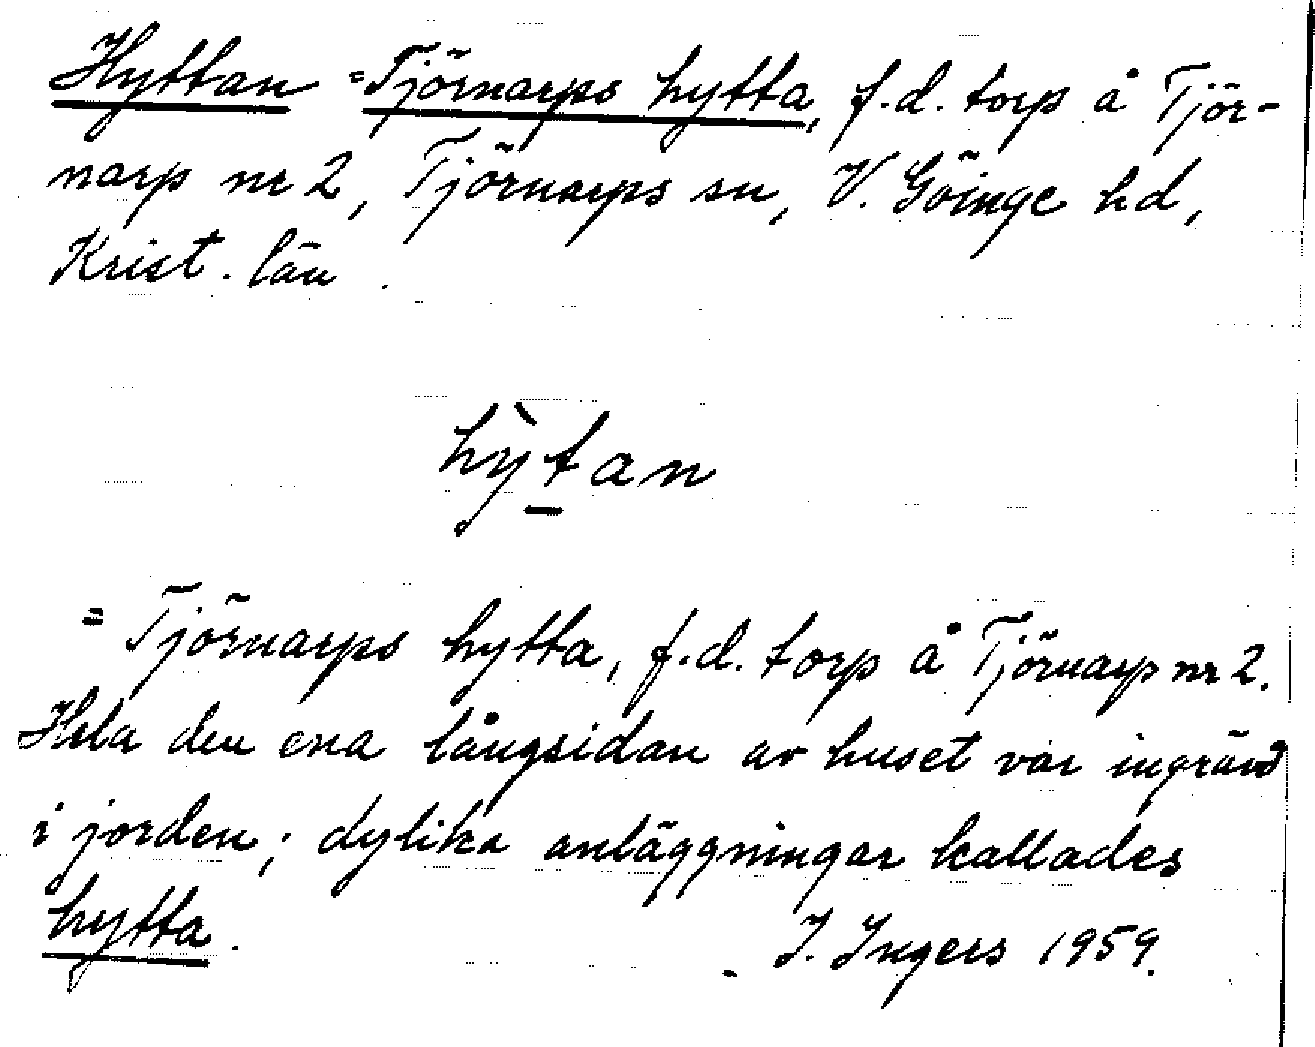 Hyttan = Tjörnarps hytta, f.d. torp å Tjör-
narp nr 2, Tjörnarps sn, V. Göinge hd,
Krist. län.
hỳtan
= Tjörnarps hytta, f.d. torp å Tjörnarp nr 2.
Hela den ena långsidan av huset var ingrävd
i jorden; dylika anläggningar kallades
hytta.
I. Ingers 1959.